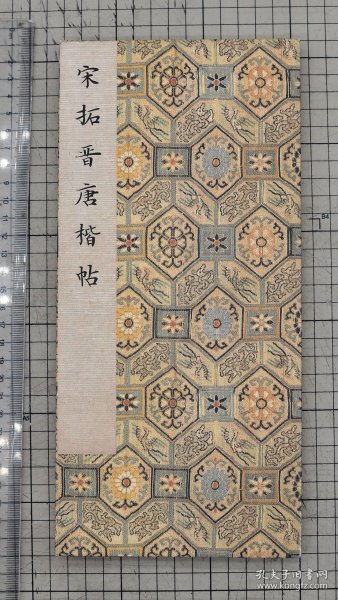 宋拓晋唐楷帖
B4
孔夫子旧书网
kongfz.com